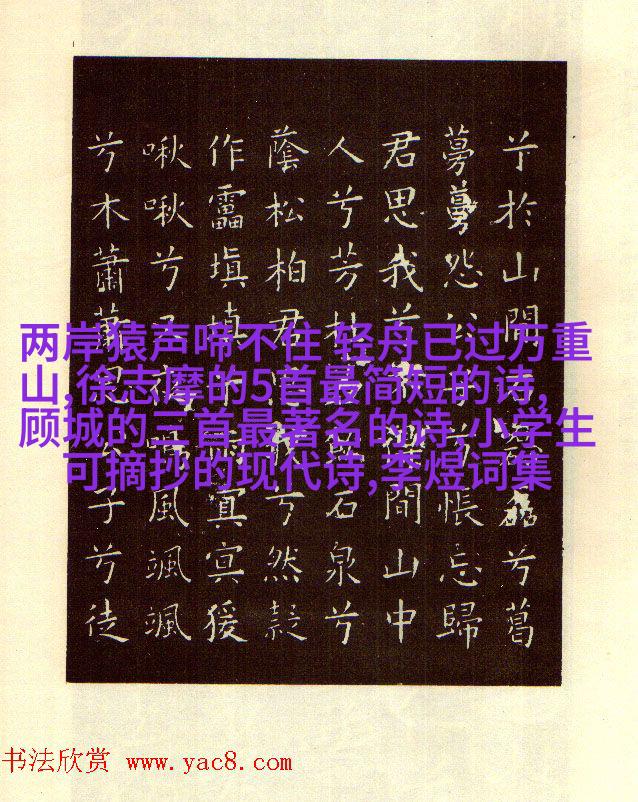 两岸猿声啼不住 轻舟已过万重
山,徐志摩的5首最简短的诗,
顾城的三首最著名的诗 小学生
可摘抄的现代诗,李煜词集
兮於山間磊兮葛
蔓蔓怨公子兮悵忘歸
君思我兮不得間山中
人兮芳杜石泉兮
蔭松柏君思我兮然疑
作靁填填雨冥冥猨
啾啾兮又夜鳴風颯颯
兮木蕭蕭思公子兮徒
书法欣赏 www.yac8.com